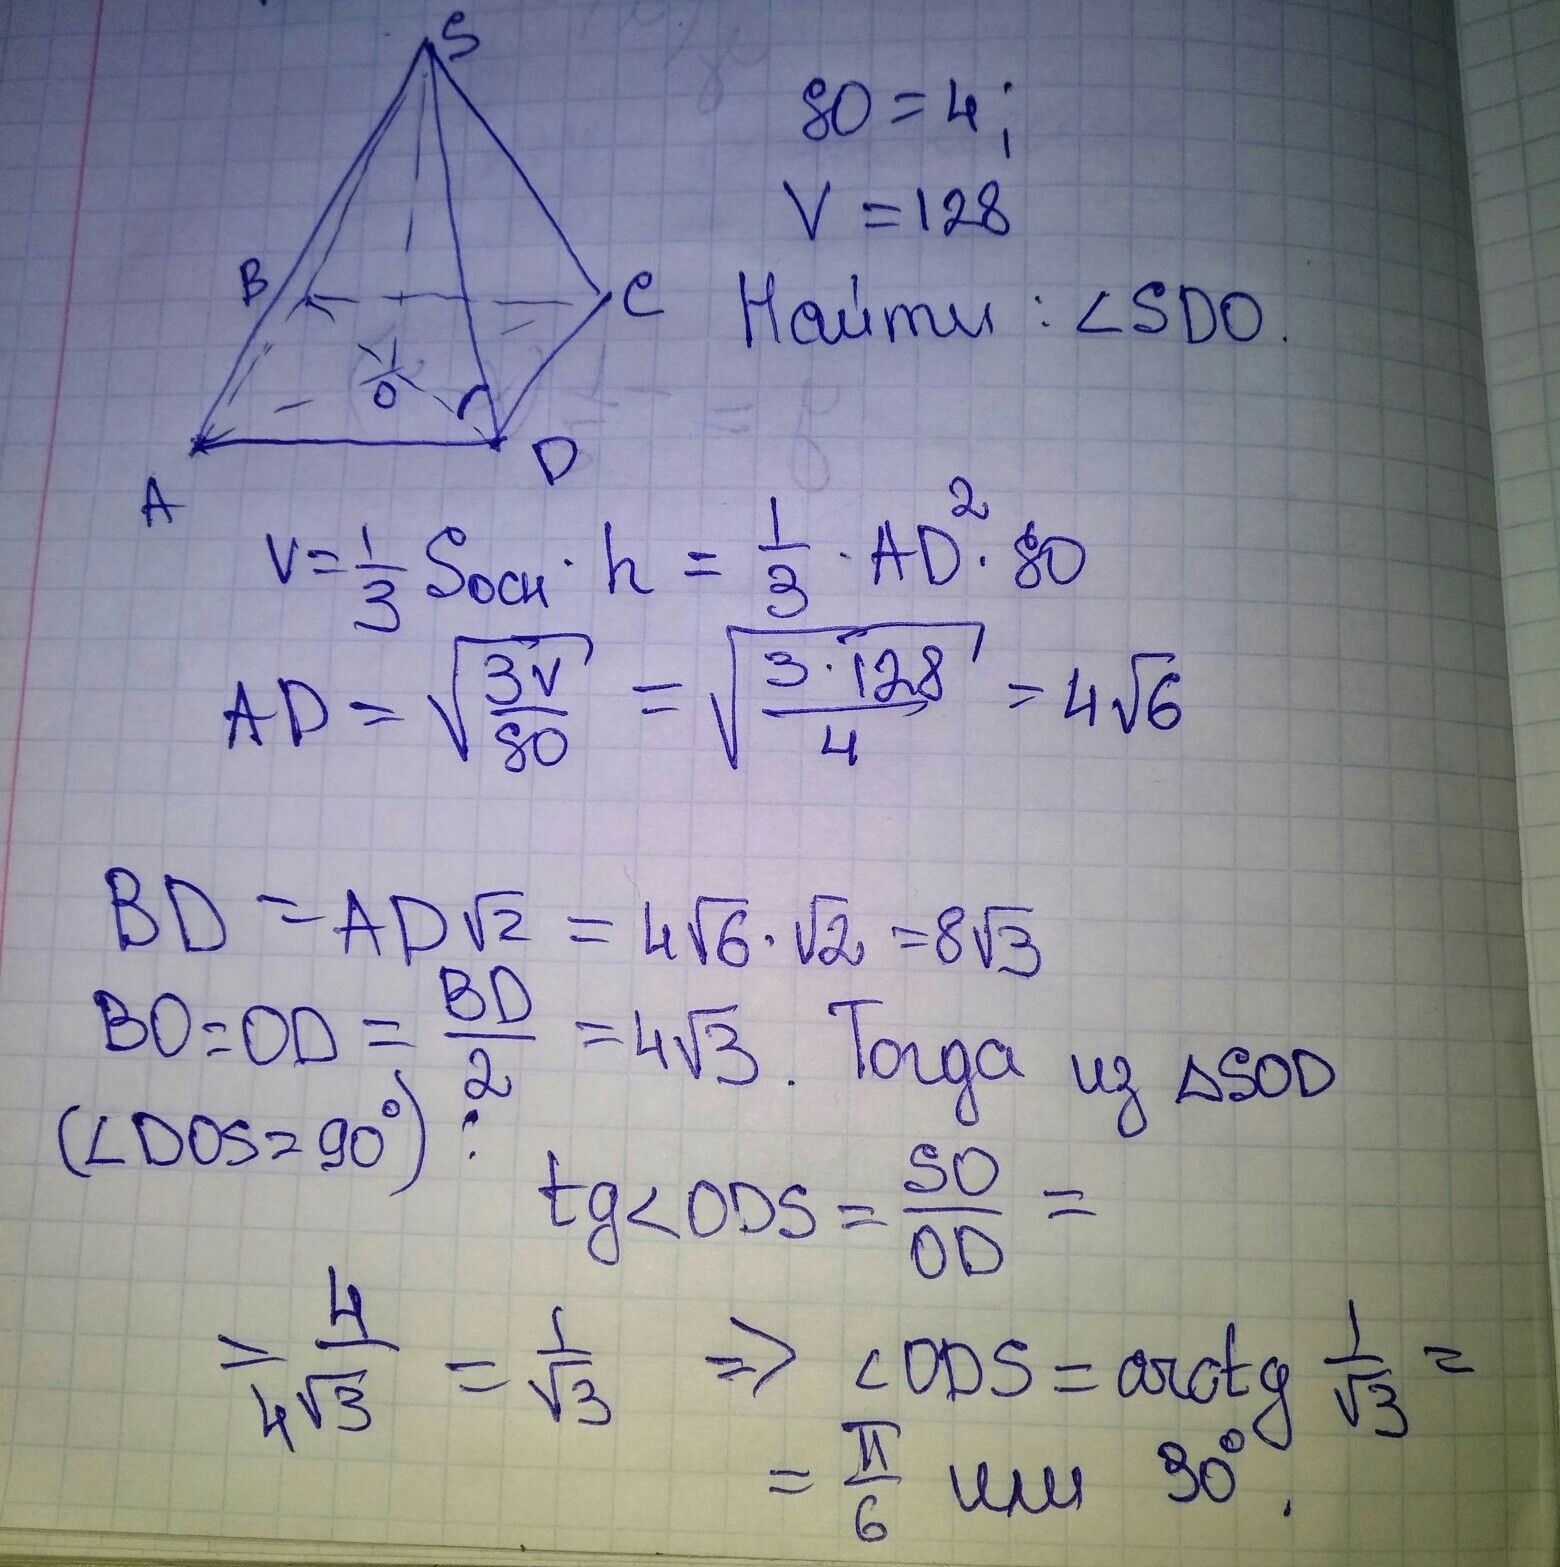 S
SO = 4;
V = 128
B
C
Найти : ∠SDO.
O
D
A
V = 1/3 Sосн · h = 1/3 · AD² · SO
AD = √(3V/SO) = √(3·128/4) = 4√6
BD = AD√2 = 4√6 · √2 = 8√3
BO = OD = BD/2 = 4√3. Тогда из △SOD
(∠DOS = 90°) :
tg∠ODS = SO/OD =
= 4/4√3 = 1/√3 => ∠ODS = arctg 1/√3 =
= π/6 или 30°.